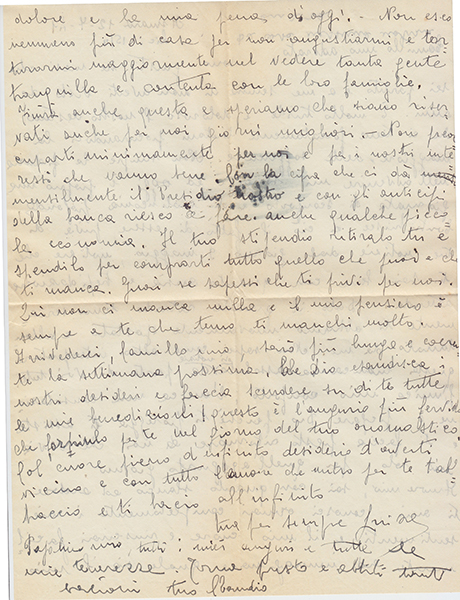 dolore e la mia pena di oggi. - Non esco
nemmeno più di casa per non angustiarmi e tor-
turarmi maggiormente nel vedere tanta gente
tranquilla e contenta con le loro famiglie.
Finirà anche questa e speriamo che siano riser-
vati anche per noi giorni migliori. - Non preoc-
cuparti minimamente per noi e per i nostri inte-
ressi che vanno bene. Con la cifra che ci dà
mensilmente il Presidio nostro e con gli anticipi
della banca riesco a fare anche qualche picco-
la economia. Il tuo stipendio ritiralo tu e
spendilo per comprarti tutto quello che puoi e che
ti manca. Guai se sapessi che ti privi per noi.
Qui non ci manca nulla e il mio pensiero è
sempre a te che temo ti manchi molto.
Arrivederci, mio sarò più lunga e
te la settimana prossima. Che Dio esaudisca i
nostri desideri e faccia scendere su di te tutte
le mie benedizioni! questo è l'augurio più fervido
che formulo per te nel giorno del tuo onomastico
Col cuore pieno d'infinito desiderio d'averti
vicino e con tutto l'amore che nutro per te t'ab-
braccio e ti bacio all'infinito
tua per sempre
Papino mio, tutti i miei auguri e tutte le
mie tenerezze. Torna presto e abbiti tanti
bacioni tuo Claudio